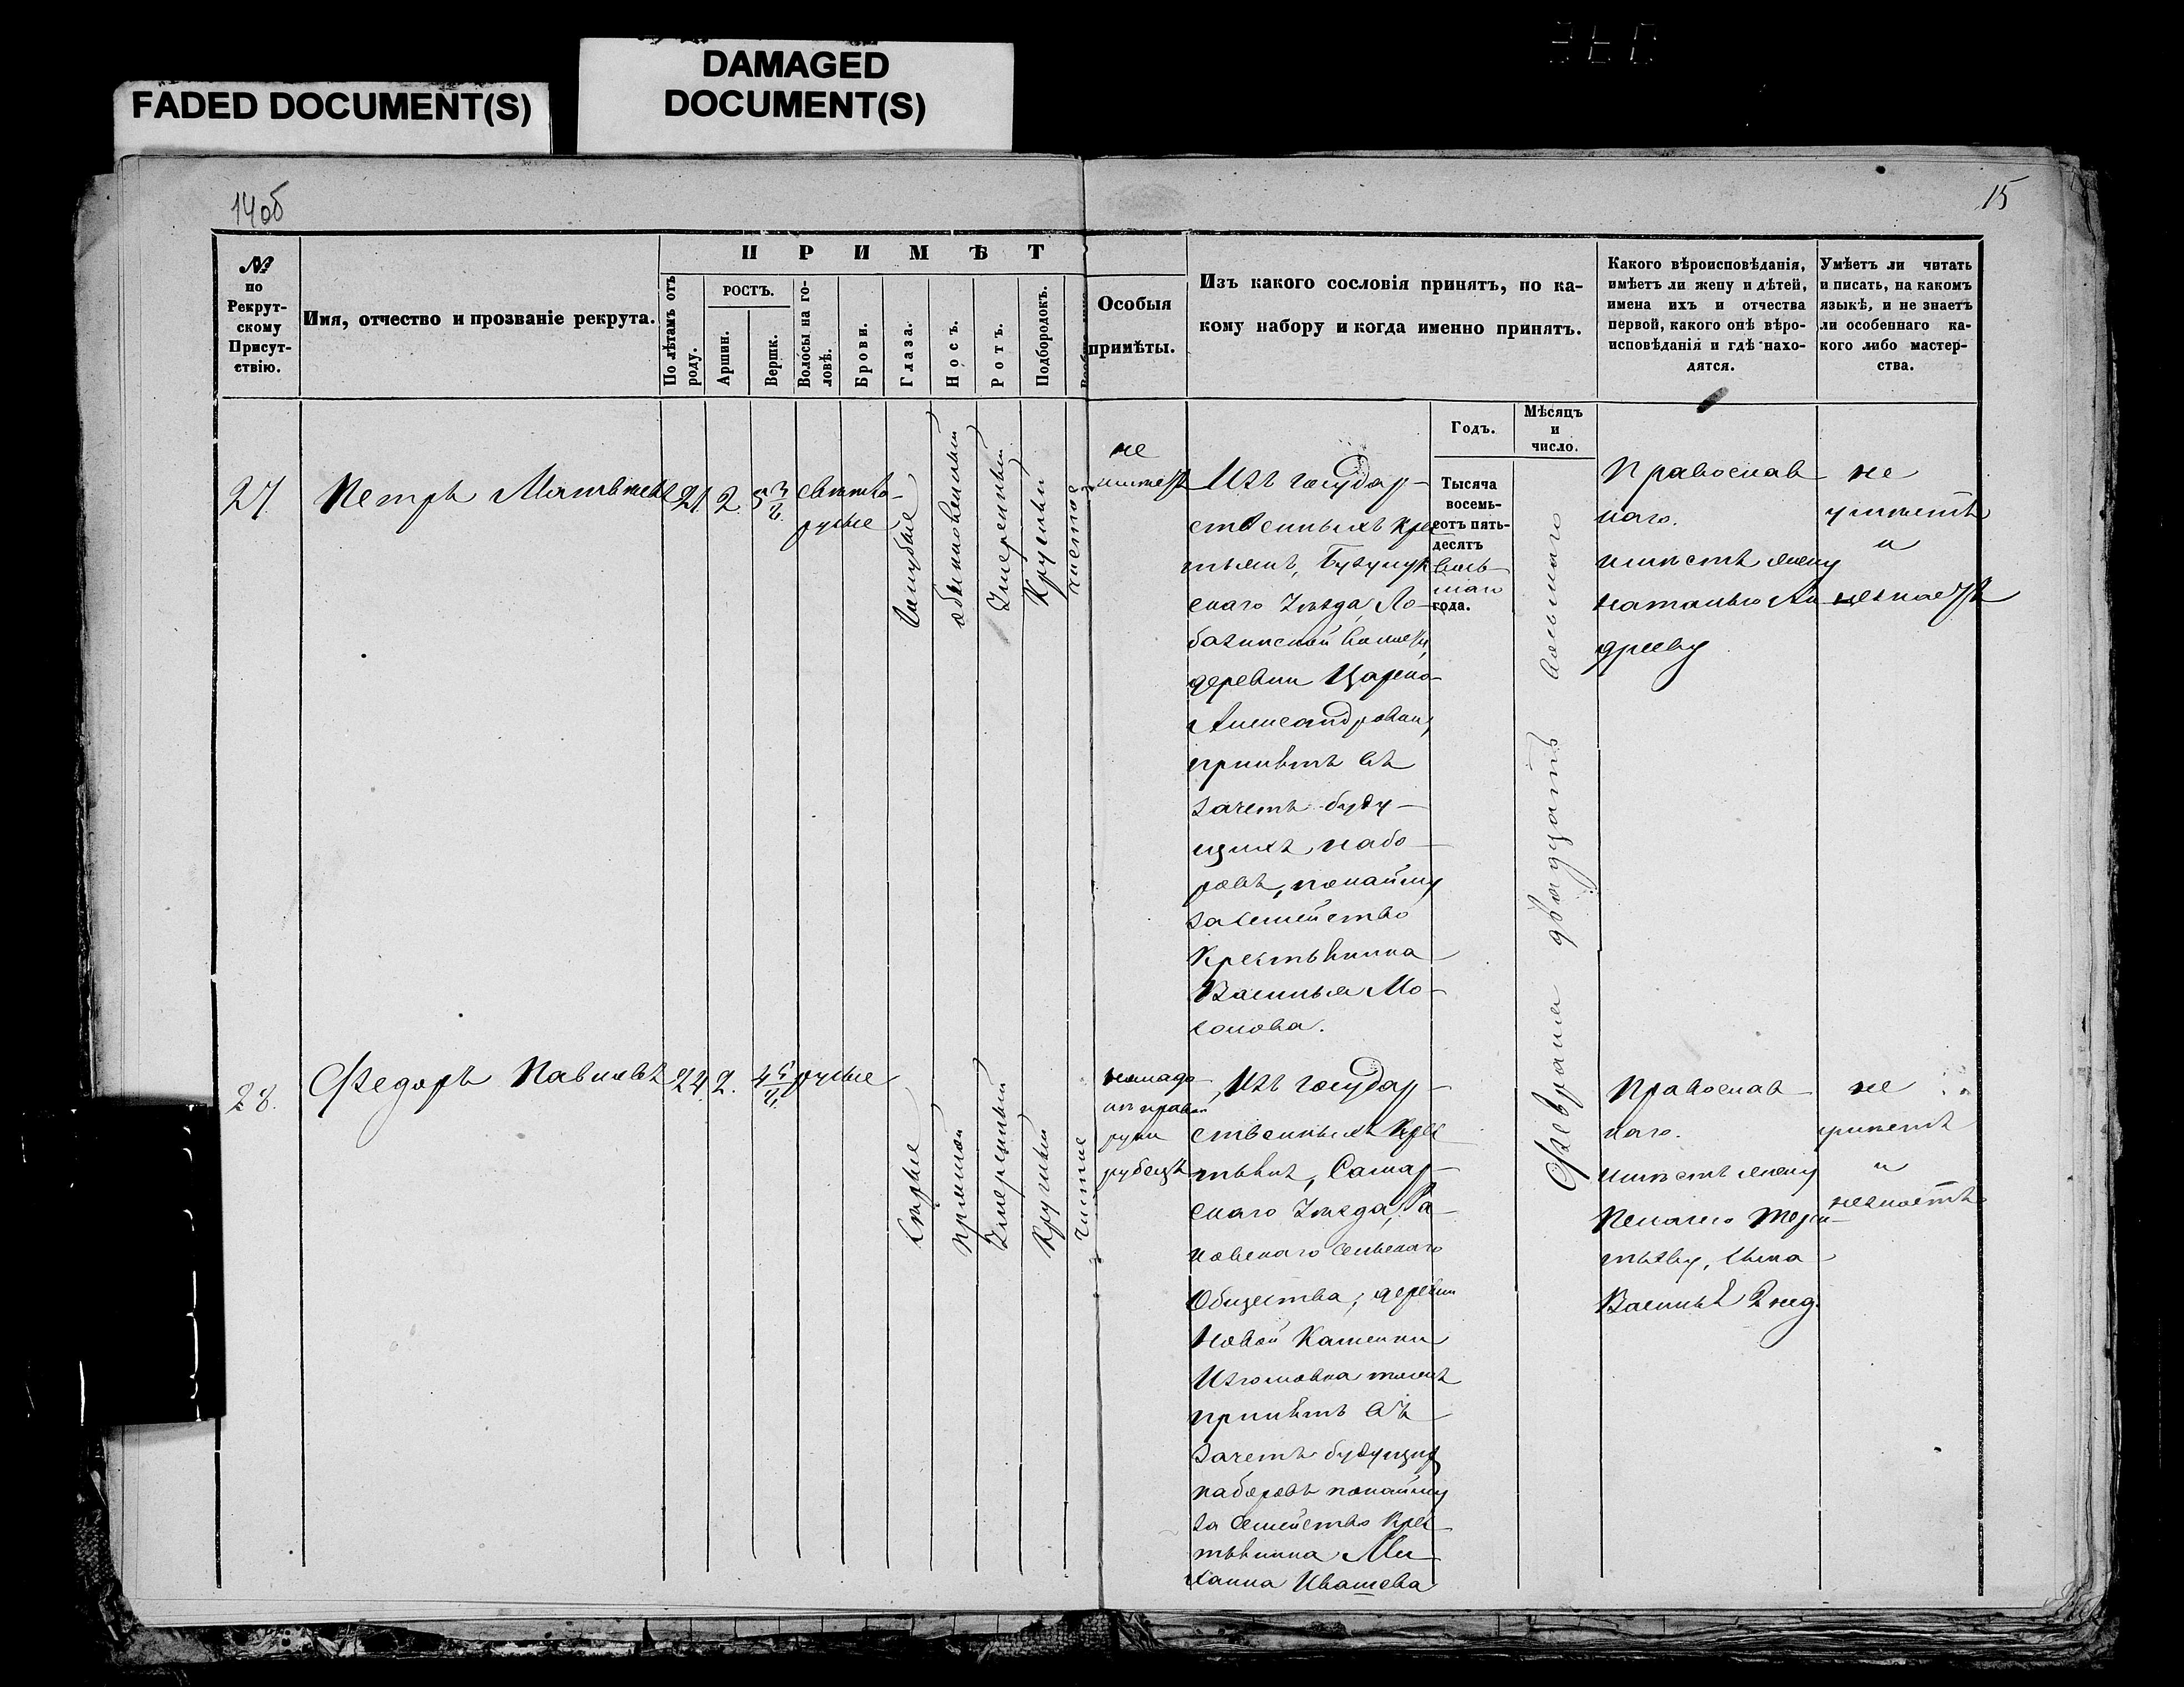 FADED DOCUMENT(S)
DAMAGED
DOCUMENT(S)
14об
15
№
по
Рекрут-
скому
Присут-
ствію.
Имя, отчество и прозваніе рекрута.
ПРИМѢТ
По лѣтамъ отъ
роду.
РОСТЪ.
Аршин.
Вершк.
Волосы на го-
ловѣ.
Брови.
Глаза.
Носъ.
Ротъ.
Подбородокъ.
Особыя
примѣты.
Изъ какого сословія принятъ, по ка-
кому набору и когда именно принятъ.
Годъ.
Мѣсяцъ
и
число.
Какого вѣроисповѣданія,
имѣетъ ли жену и дѣтей,
имена ихъ и отчества
первой, какого онѣ вѣро-
исповѣданія и гдѣ нахо-
дятся.
Умѣетъ ли читать
и писать, на какомъ
языкѣ, и не знаетъ
ли особеннаго ка-
кого либо мастер-
ства.
27
Петръ Матвѣевъ
21
2
5 3/8
свѣтло-
русые
Голубые
обыкновенный
Умеренный
Круглый
чистое
не
имеетъ
Изъ государ-
ственныхъ крес
тьянъ, Бузулук
скаго Уѣзда, Ло-
базинской волости,
деревни Царево-
Александровки,
принятъ въ
зачетъ буду-
щихъ набо-
ровъ, по найму
за семейство
Крестьянина
Василья Мо-
Тысяча
восемь-
сотъ пять-
десятъ
вось-
маго
года.
Февраля двадцать восьмаго
Православ
наго.
имѣетъ жену
Наталью Ан
дрееву
не
умѣетъ
и
незнаетъ
28.
Федоръ Павловъ
24
2.
4 5/8
русые
Серые
прямой
Умеренный
Круглый
Чистое
правой
руки
рубецъ
Изъ государ-
ственныхъ Крес
тьянъ, Самар-
скаго Уѣзда, Ра-
ковскаго сельскаго
Общества, деревни
Новой Каменки
Изюмовка тожъ
принятъ въ
зачетъ будущихъ
наборовъ по найму
за семейство Крес
тьянина Ми-
хаила Ивашева
Православ
наго.
имѣетъ жену
Пелагею Терен-
тьеву, сына
Василья 2 нед.
не
умѣетъ
и
незнаетъ